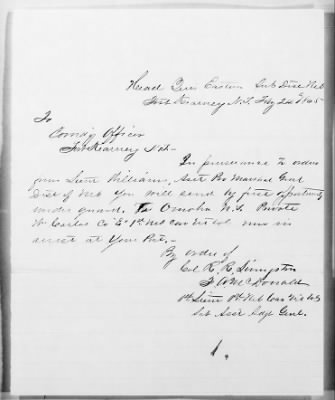 Head Qrs Eastern Sub Dist Neb
Fort Kearney N.T. Feby 24" 1865
To
Comd'g Officer
Fort Kearney Neb.-
In pursuance to orders
from Lieut Williams, Asst Pro Marshal Genl
Dist of Neb You will send by first opportunity
under guard. To Omaha N.T. Private
Wm Carlos Co "E" 1st Neb Cav Vet Vol now in
arrest at Your Post.-
By order of
Col R. R. Livingston
McDonald
1st Lieut 1st Neb Cav Vet Vols
Sub Asst Adjt Genl.